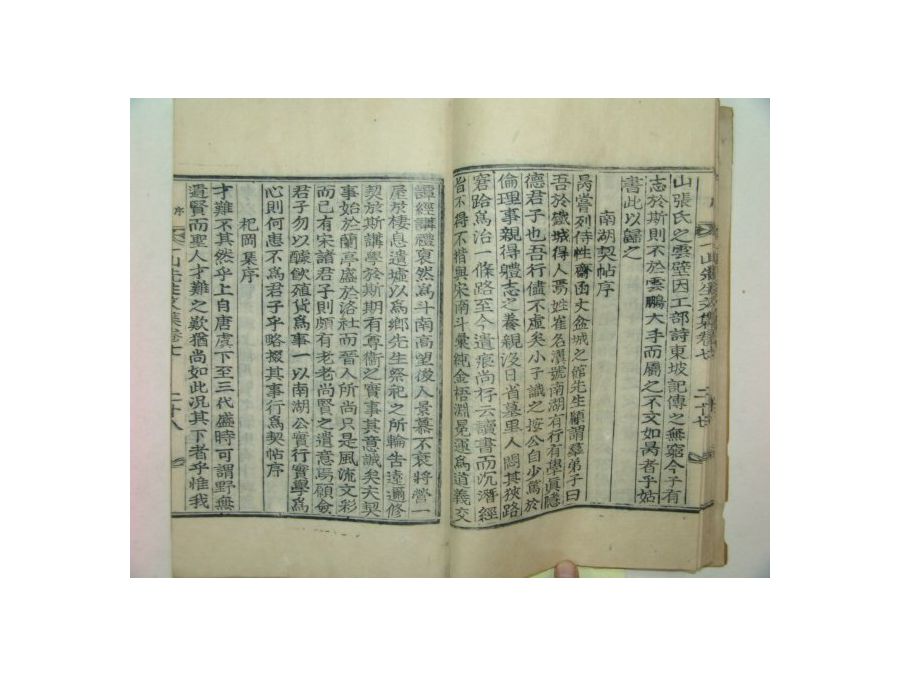 山張氏之雲壁因工部詩東坡記傳之無窮今子有
志於斯則不於雲鵬大手而屬之不文如昺者乎姑
書此以歸之
南湖契帖序
昺嘗列侍性齋函丈金城之館先生顧謂羣弟子曰
吾於鐵城得人焉姓崔名 號南湖有行有學眞隱
德君子也吾行儘不虛矣小子識之按公自少篤於
倫理事親得軆志之養親沒日省墓里人悶其狹路
窘路爲治一條路至今遺痕尚存云讀書而沉潛經
旨不得不措與宋南斗 純金梧淵晃運爲道義交
譚經講禮裒然爲斗南高望後人景慕不衰將營一
屋於棲息遺墟以爲鄉先生祭社之所輪告遠邇修
契於斯講學於斯期有尊衛之實事其意誠矣夫契
事始於蘭亭盛於洛社而晉人所尚只是風流文彩
而已有宋諸君子則頗有老老尚賢之遺意焉願僉
君子勿以醵飮殖貨爲事一以南湖公實行實學爲
心則何患不爲君子乎略掇其事行爲契帖序
杞岡集序
才難不其然乎上自唐虞下至三代盛時可謂野無
遺賢而聖人才難之歎猶尚如此況其下者乎惟我
序 一山先生文集卷七 二十八